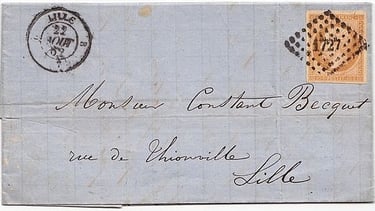 LILLE
22
AOUT
62
1727
Monsieur Constant Becquet
rue de Thionville
Lille